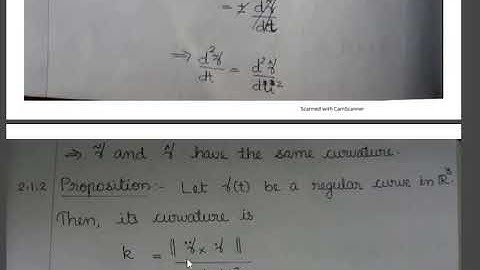 = ± dγ̃/dt
⇒ d²γ/dt = d²γ̃/dt²
Scanned with CamScanner
⇒ γ̃ and γ have the same curvature.
2.1.2 Proposition:- Let γ(t) be a regular curve in ℝ³.
Then, its curvature is
k = ‖ γ̈ × γ̇ ‖